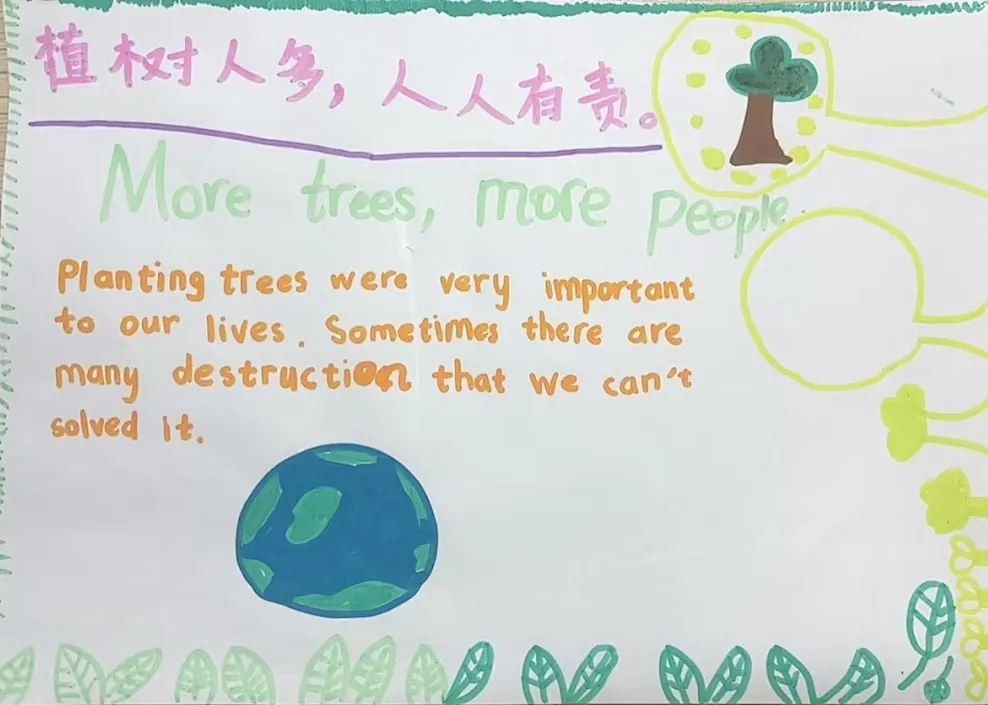 植树人多，人人有责。
More trees, more people
Planting trees were very important
to our lives. Sometimes there are
many destruction that we can't
solved it.